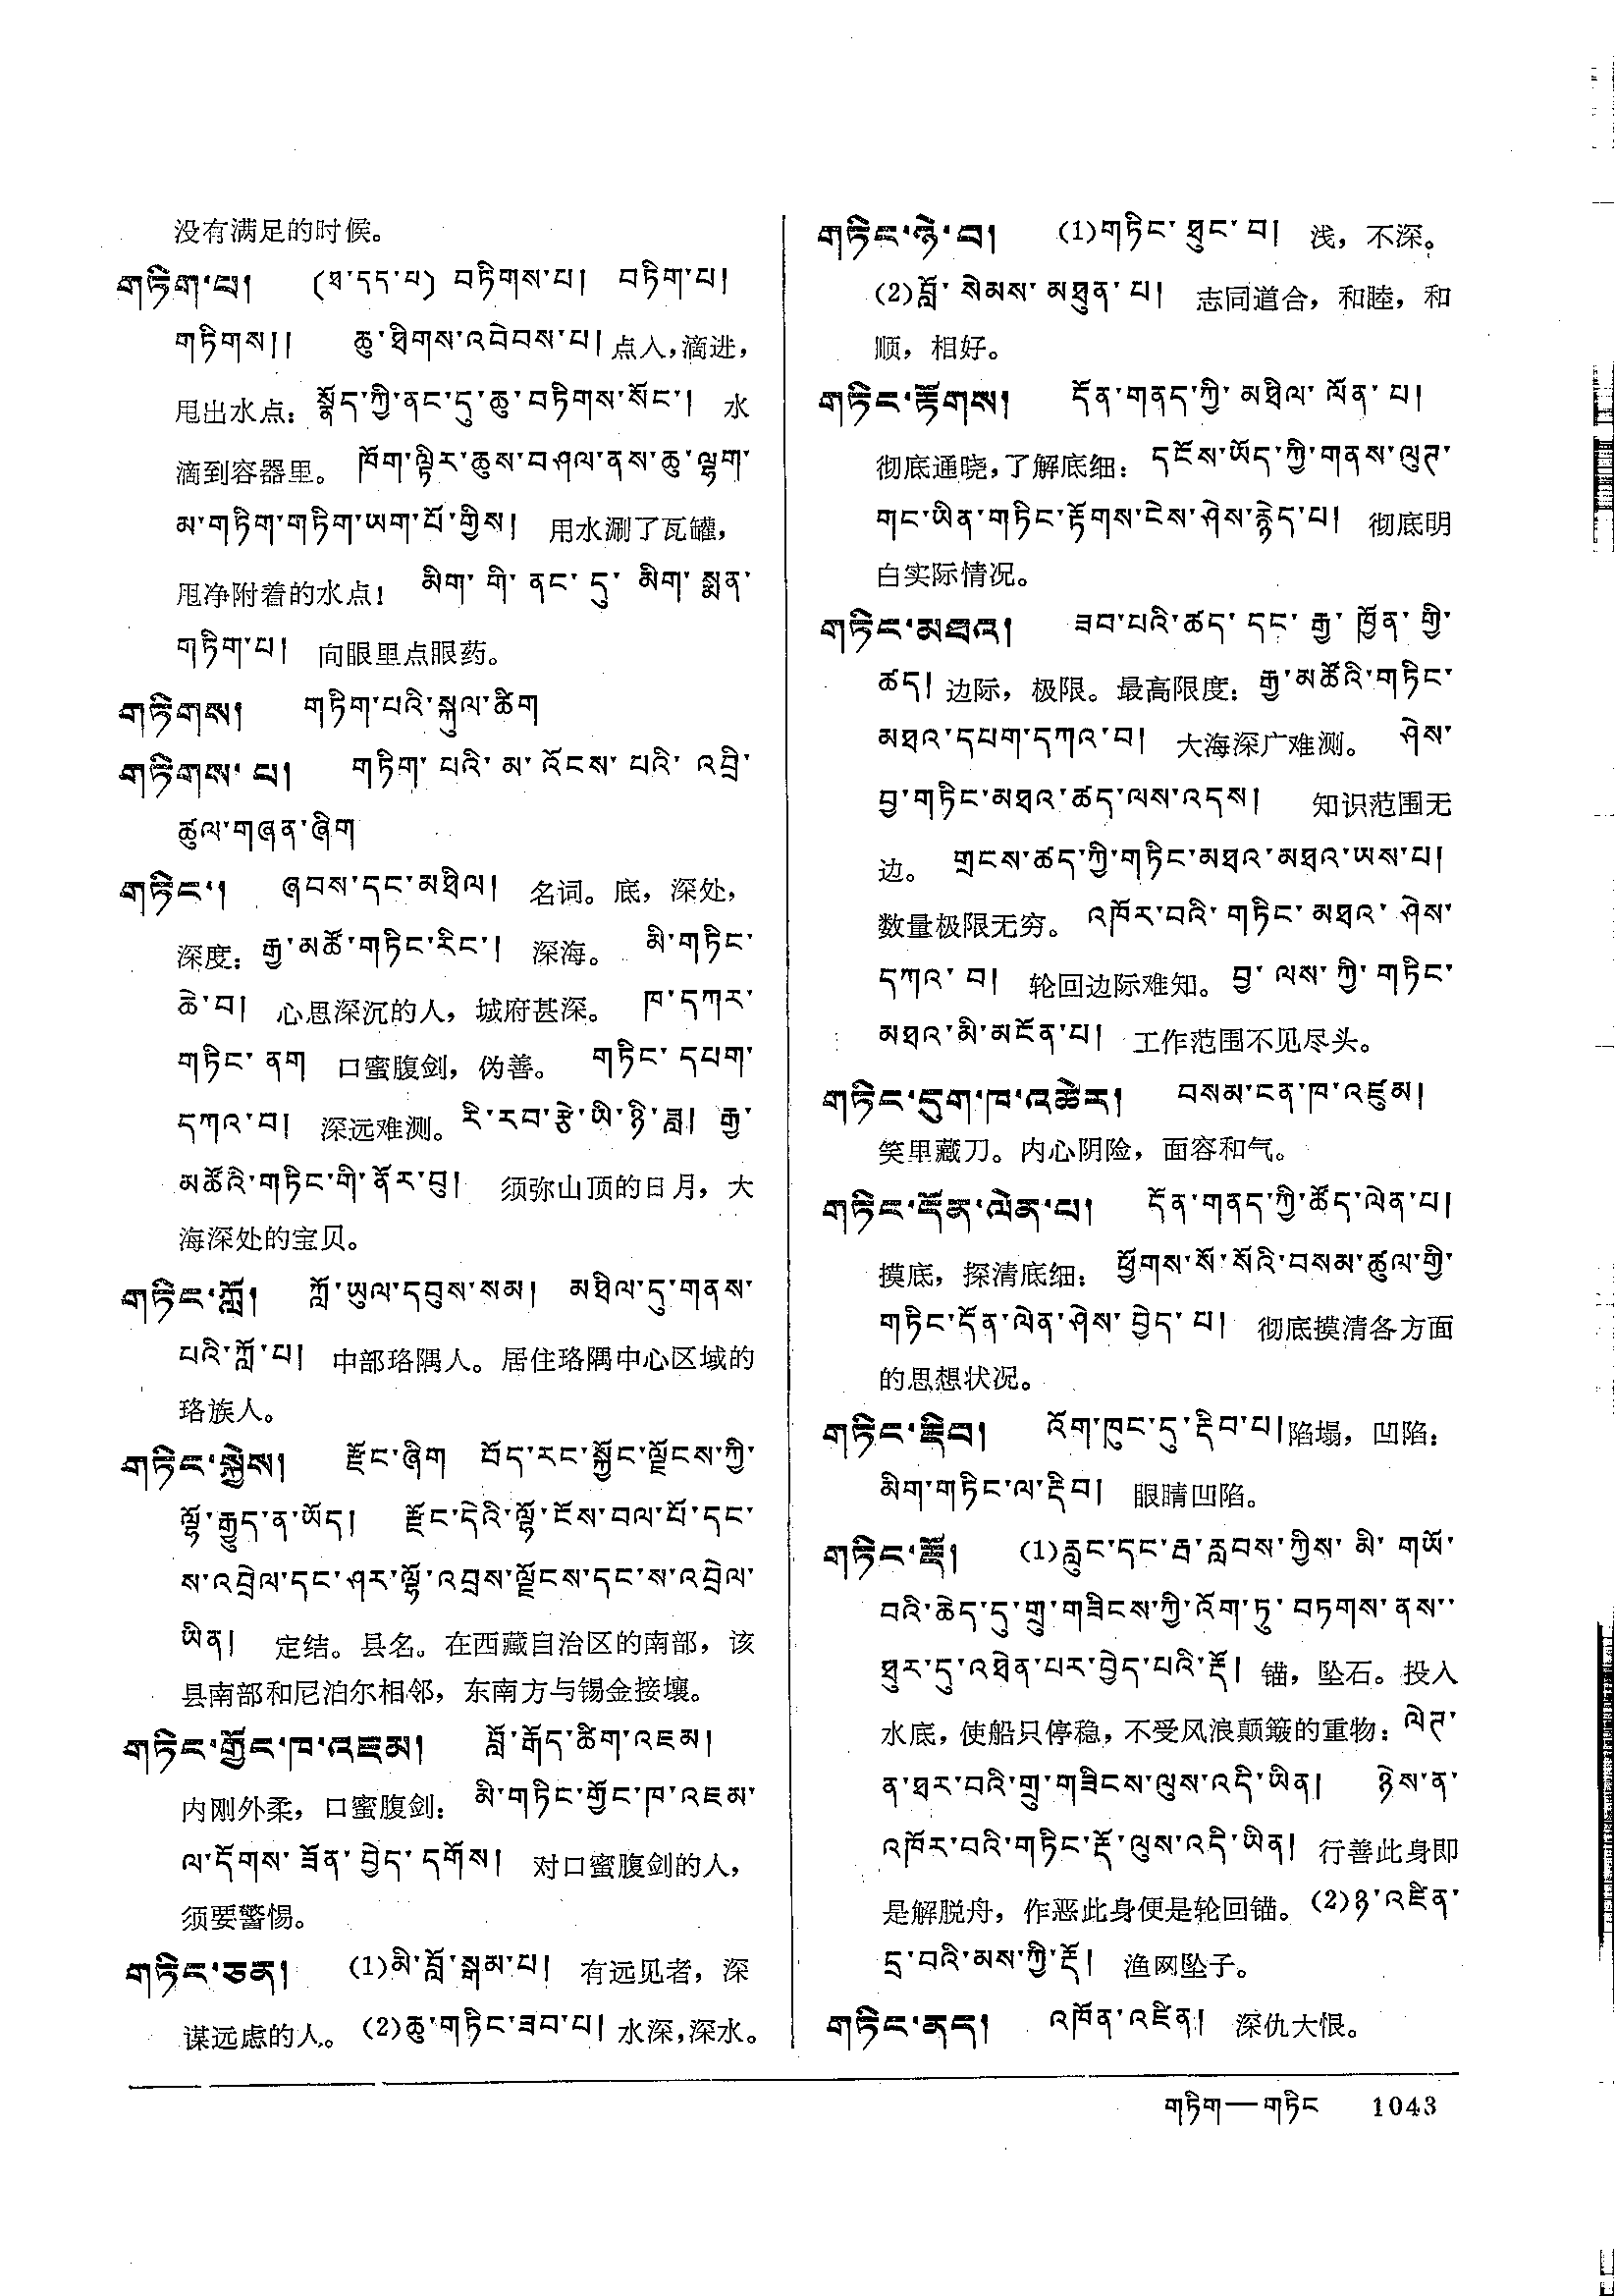 没有满足的时候。
གཏིག་པ། (ཐ་དད་པ) བཏིགས་པ། བཏིག་པ།
གཏིགས།། ཆུ་ཐིགས་འབེབས་པ། 点入,滴进,
甩出水点: སྣོད་ཀྱི་ནང་དུ་ཆུ་བཏིགས་སོང་། 水
滴到容器里。 ཁོག་ལྟིར་ཆུས་བཤལ་ནས་ཆུ་ལྷག་
མ་གཏིག་གཏིག་ཡག་པོ་གྱིས། 用水涮了瓦罐,
甩净附着的水点! མིག་གི་ནང་དུ་མིག་སྨན་
གཏིག་པ། 向眼里点眼药。
གཏིགས། གཏིག་པའི་སྐུལ་ཚིག
གཏིགས་པ། གཏིག་པའི་མ་འོངས་པའི་འབྲི་
ཚུལ་གཞན་ཞིག
གཏིང་། ཞབས་དང་མཐིལ། 名词。底,深处,
深度: རྒྱ་མཚོ་གཏིང་རིང་། 深海。 མི་གཏིང་
ཆེ་བ། 心思深沉的人,城府甚深。 ཁ་དཀར་
གཏིང་ནག 口蜜腹剑,伪善。 གཏིང་དཔག་
དཀའ་བ། 深远难测。 རི་རབ་རྩེ་ཡི་ཉི་ཟླ། རྒྱ་
མཚོའི་གཏིང་གི་ནོར་བུ། 须弥山顶的日月,大
海深处的宝贝。
གཏིང་ཀློ། ཀློ་ཡུལ་དབུས་སམ། མཐིལ་དུ་གནས་
པའི་ཀློ་པ། 中部珞隅人。居住珞隅中心区域的
珞族人。
གཏིང་སྐྱེས། རྫོང་ཞིག བོད་རང་སྐྱོང་ལྗོངས་ཀྱི་
ལྷོ་རྒྱུད་ན་ཡོད། རྫོང་དེའི་ལྷོ་ངོས་བལ་པོ་དང་
ས་འབྲེལ་དང་ཤར་ལྷོ་འབྲས་ལྗོངས་དང་ས་འབྲེལ་
ཡིན། 定结。县名。在西藏自治区的南部,该
县南部和尼泊尔相邻,东南方与锡金接壤。
གཏིང་གྱོང་ཁ་འཇམ། བློ་རྒོད་ཚིག་འཇམ།
内刚外柔,口蜜腹剑: མི་གཏིང་གྱོང་ཁ་འཇམ་
ལ་དོགས་ཟོན་བྱེད་དགོས། 对口蜜腹剑的人,
须要警惕。
གཏིང་ཅན། (1)མི་བློ་སྒམ་པ། 有远见者,深
谋远虑的人。 (2)ཆུ་གཏིང་ཟབ་པ། 水深,深水。
གཏིང་ཉེ་བ། (1)གཏིང་ཐུང་བ། 浅,不深。
(2)བློ་སེམས་མཐུན་པ། 志同道合,和睦,和
顺,相好。
གཏིང་རྟོགས། དོན་གནད་ཀྱི་མཐིལ་ལོན་པ།
彻底通晓,了解底细: དངོས་ཡོད་ཀྱི་གནས་ལུཊ་
གང་ཡིན་གཏིང་རྟོགས་ངེས་ཤེས་རྙེད་པ། 彻底明
白实际情况。
གཏིང་མཐའ། ཟབ་པའི་ཚད་དང་རྒྱ་ཁྱོན་གྱི་
ཚད། 边际,极限。最高限度: རྒྱ་མཚོའི་གཏིང་
མཐའ་དཔག་དཀའ་བ། 大海深广难测。 ཤེས་
བྱ་གཏིང་མཐའ་ཚད་ལས་འདས། 知识范围无
边。 གྲངས་ཚད་ཀྱི་གཏིང་མཐའ་མཐའ་ཡས་པ།
数量极限无穷。 འཁོར་བའི་གཏིང་མཐའ་ཤེས་
དཀའ་བ། 轮回边际难知。 བྱ་ལས་ཀྱི་གཏིང་
མཐའ་མི་མངོན་པ། 工作范围不见尽头。
གཏིང་དུག་ཁ་འཚེར། བསམ་ངན་ཁ་འཛུམ།
笑里藏刀。内心阴险,面容和气。
གཏིང་དོན་ལེན་པ། དོན་གནད་ཀྱི་ཚོད་ལེན་པ།
摸底,探清底细: ཕྱོགས་སོ་སོའི་བསམ་ཚུལ་གྱི་
གཏིང་དོན་ལེན་ཤེས་བྱེད་པ། 彻底摸清各方面
的思想状况。
གཏིང་རྡིབ། འོག་ཁུང་དུ་རྡིབ་པ། 陷塌,凹陷:
མིག་གཏིང་ལ་རྡིབ། 眼睛凹陷。
གཏིང་རྡོ། (1)རླུང་དང་རྦ་རླབས་ཀྱིས་མི་གཡོ་
བའི་ཆེད་དུ་གྲུ་གཟིངས་ཀྱི་འོག་ཏུ་བཏགས་ནས་་
ཐུར་དུ་འཐེན་པར་བྱེད་པའི་རྡོ། 锚,坠石。投入
水底,使船只停稳,不受风浪颠簸的重物: ལེཊ་
ན་ཐར་བའི་གྲུ་གཟིངས་ལུས་འདི་ཡིན། ཉེས་ན་
འཁོར་བའི་གཏིང་རྡོ་ལུས་འདི་ཡིན། 行善此身即
是解脱舟,作恶此身便是轮回锚。 (2)ཉ་འཛིན་
དྲ་བའི་མས་ཀྱི་རྡོ། 渔网坠子。
གཏིང་ནད། འཁོན་འཛིན། 深仇大恨。
གཏིག—གཏིང 1043